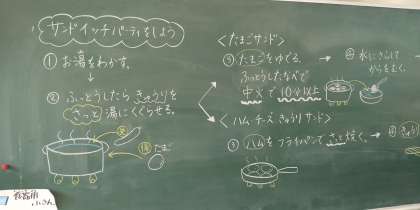 サンドイッチパーティをしよう
① お湯をわかす。
↓
② ふっとうしたらきゅうりを
さっと湯にくぐらせる。
先
後
たまご
＜たまごサンド＞
③ たまごをゆでる。
ふっとうしたなべで
中火で10分以上
→ ④ 水にさらして
からをむく。
＜ハム・チーズ きゅうりサンド＞
③ ハムをフライパンでさっと焼く。
→ ④ きゅう